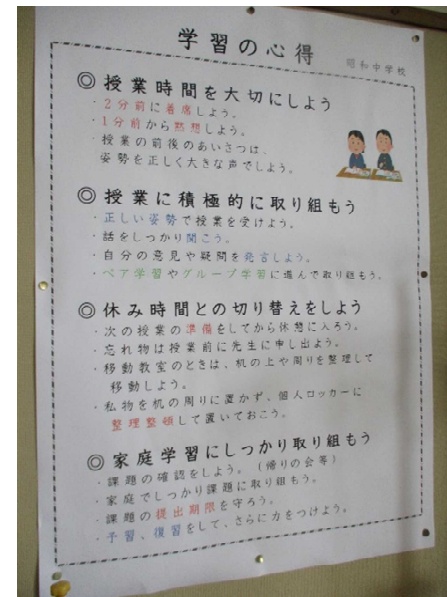 学習の心得
昭和中学校
◎授業時間を大切にしよう
・2分前に着席しよう。
・1分前から黙想しよう。
授業の前後のあいさつは、
姿勢を正しく大きな声でしよう。
◎授業に積極的に取り組もう
・正しい姿勢で授業を受けよう。
・話をしっかり聞こう。
・自分の意見や疑問を発言しよう。
・ペア学習やグループ学習に進んで取り組もう。
◎休み時間との切り替えをしよう
・次の授業の準備をしてから休憩に入ろう。
・忘れ物は授業前に先生に申し出よう。
・移動教室のときは、机の上や周りを整理して
移動しよう。
・私物を机の周りに置かず、個人ロッカーに
整理整頓して置いておこう。
◎家庭学習にしっかり取り組もう
・課題の確認をしよう。(帰りの会等)
・家庭でしっかり課題に取り組もう。
・課題の提出期限を守ろう。
・予習、復習をして、さらに力をつけよう。